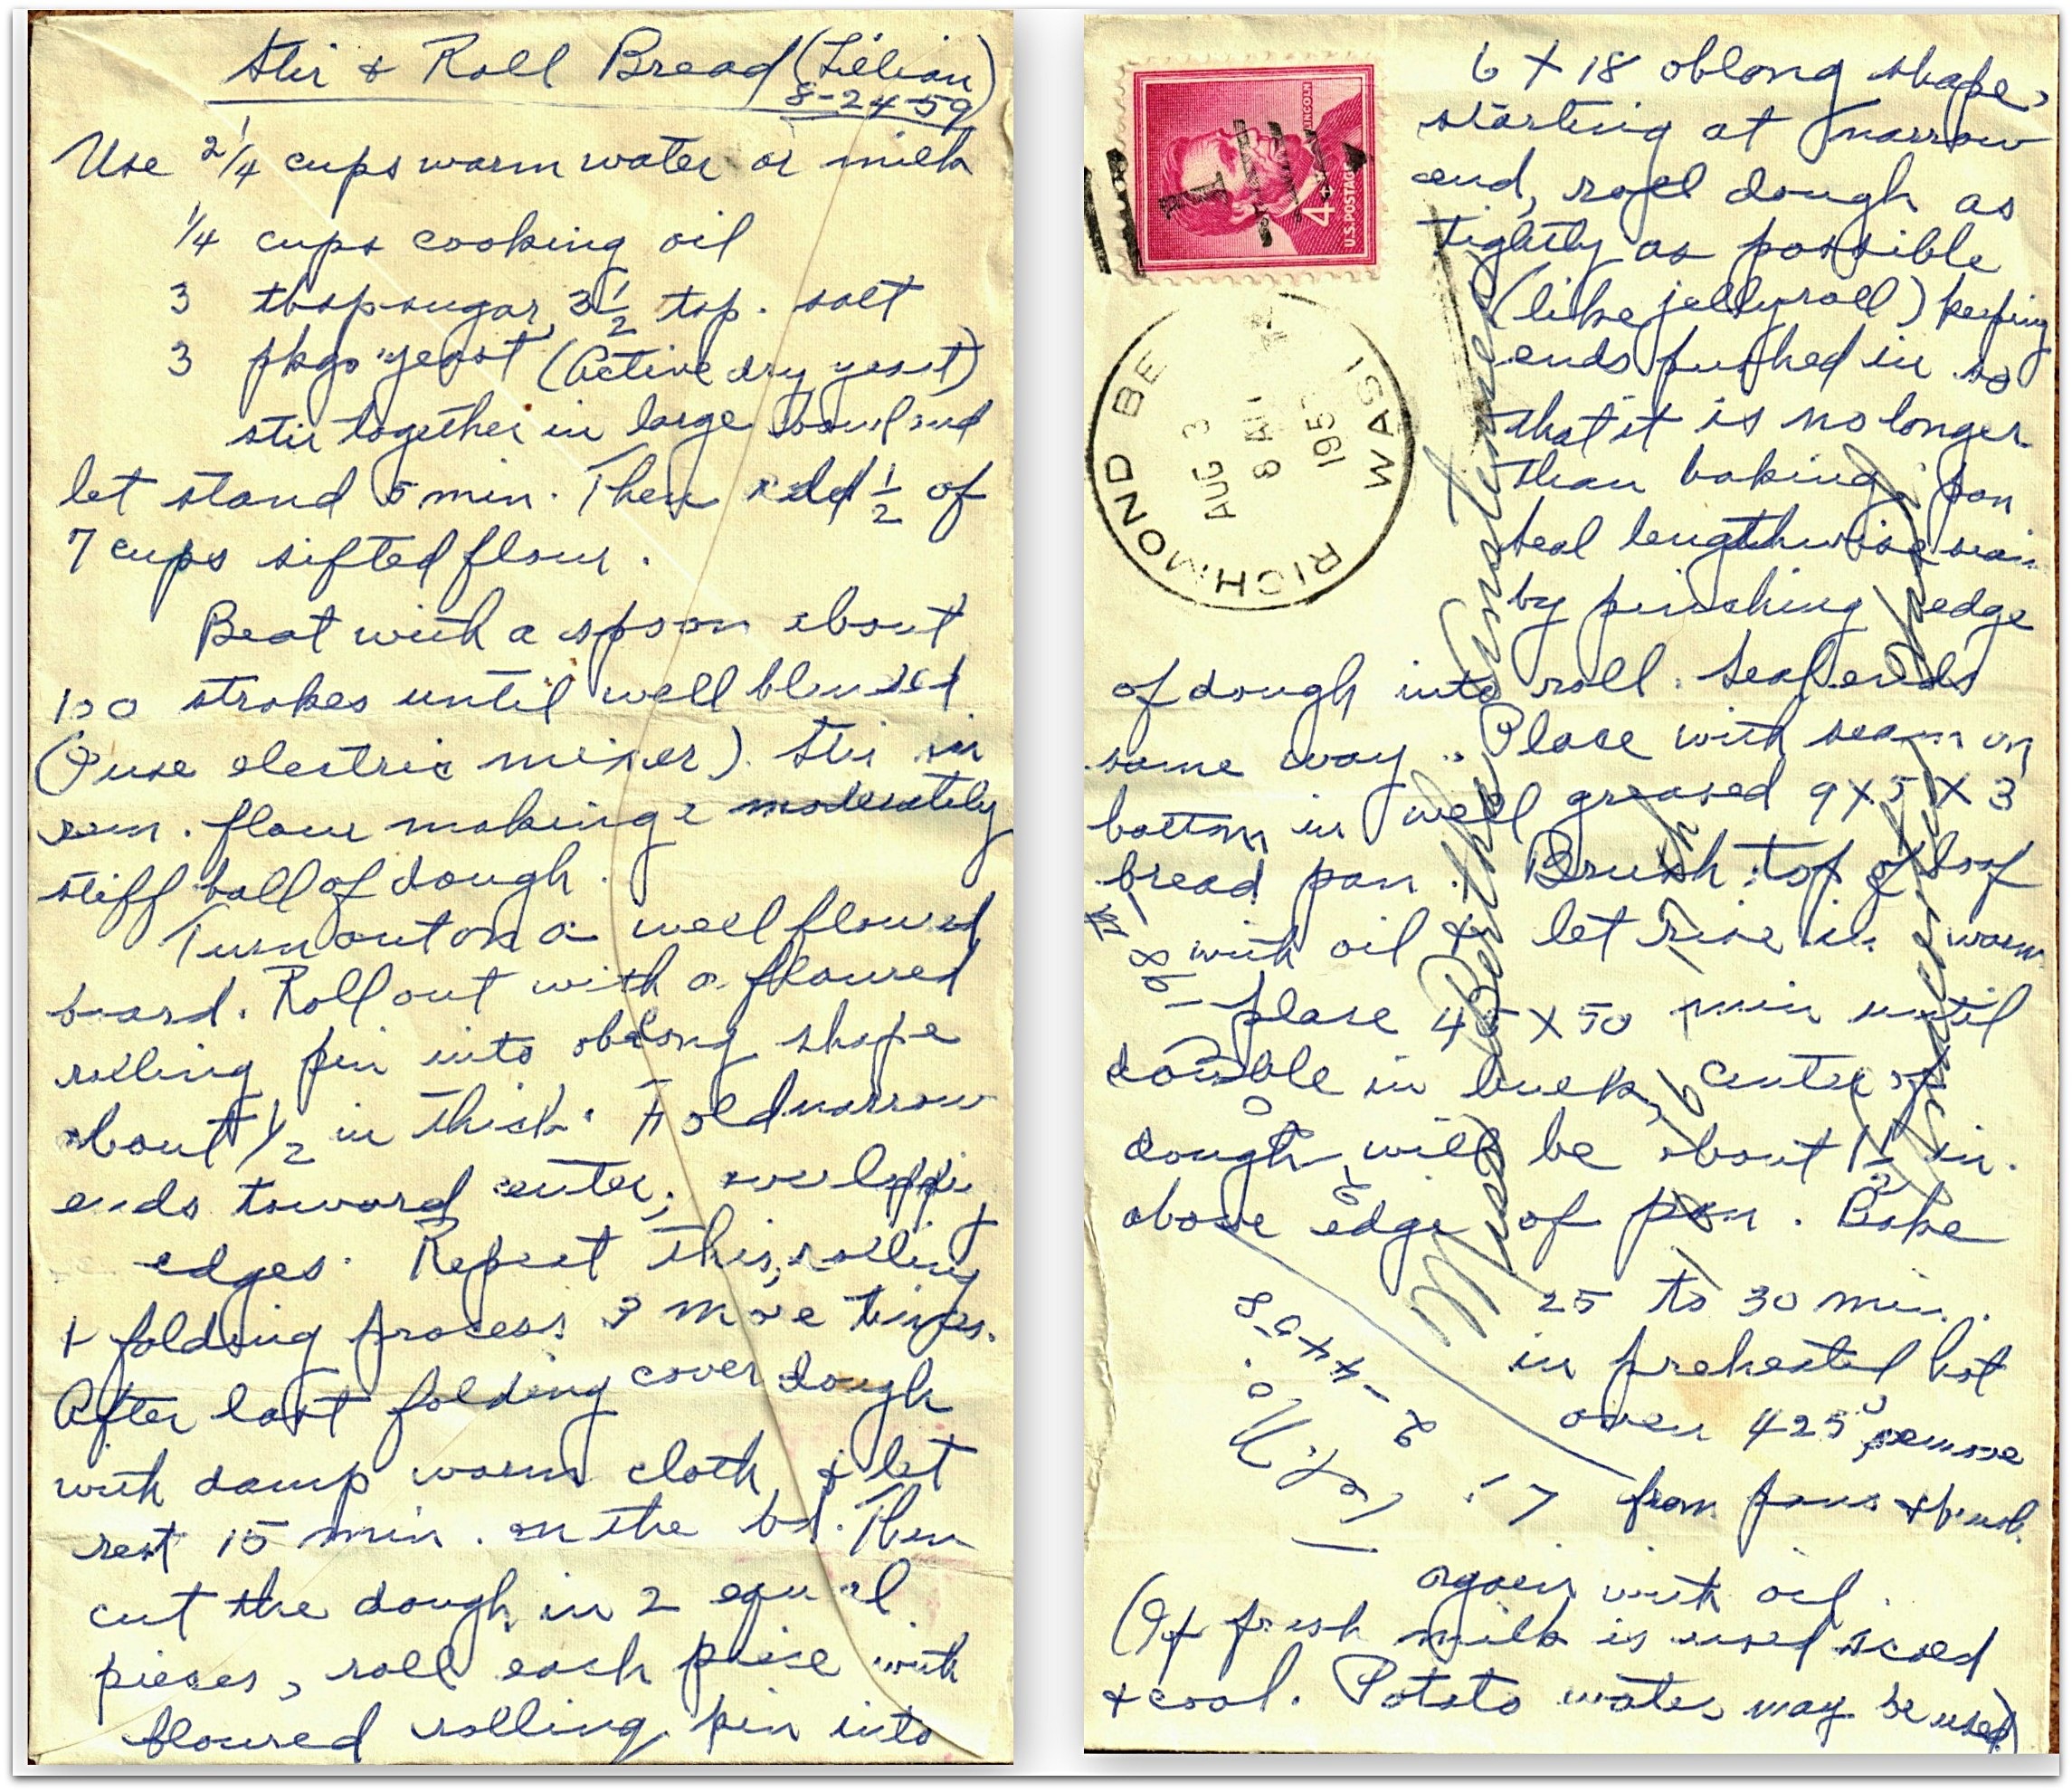 Stir & Roll Bread (Lilian)
8-24-59
Use 2 1/4 cups warm water or milk
1/4 cups cooking oil
3 tbsp sugar, 3 1/2 tsp. salt
3 pkgs yeast (Active dry yeast)
stir together in large bowl and
let stand 5 min. Then add 1/2 of
7 cups sifted flour.
Beat with a spoon about
100 strokes until well blended
(I use electric mixer). Stir in
rem. flour making a moderately
stiff ball of dough.
Turn out on a well floured
board. Roll out with a floured
rolling pin into oblong shape
about 1/2 in thick. Fold narrow
ends toward center, overlapping
edges. Repeat this, rolling
& folding process 3 more times.
After last folding cover dough
with damp warm cloth, & let
rest 15 min. on the bd. Then
cut the dough in 2 equal
pieces, roll each piece with
floured rolling pin into
6 X 18 oblong shape,
starting at narrow
end, roll dough as
tightly as possible
(like jellyroll) keeping
ends pushed in so
that it is no longer
than baking pan
seal lengthwise seam
by pinching edge
of dough into roll. Seal ends
same way. Place with seam on
bottom in well greased 9 X 5 X 3
bread pan. Brush top of loaf
with oil & let rise in warm
place 45 X 50 min until
double in bulk, center of
dough will be about 1 1/2 in.
above edge of pan. Bake
25 to 30 min.
in preheated hot
oven 425° remove
from pans & brush
again with oil.
(If fresh milk is used scald
& cool. Potato water may be used)
LINCOLN
4¢
U.S. POSTAGE
RICHMOND BE
WASH
AUG 3
8 AM
195
Miss Bertha